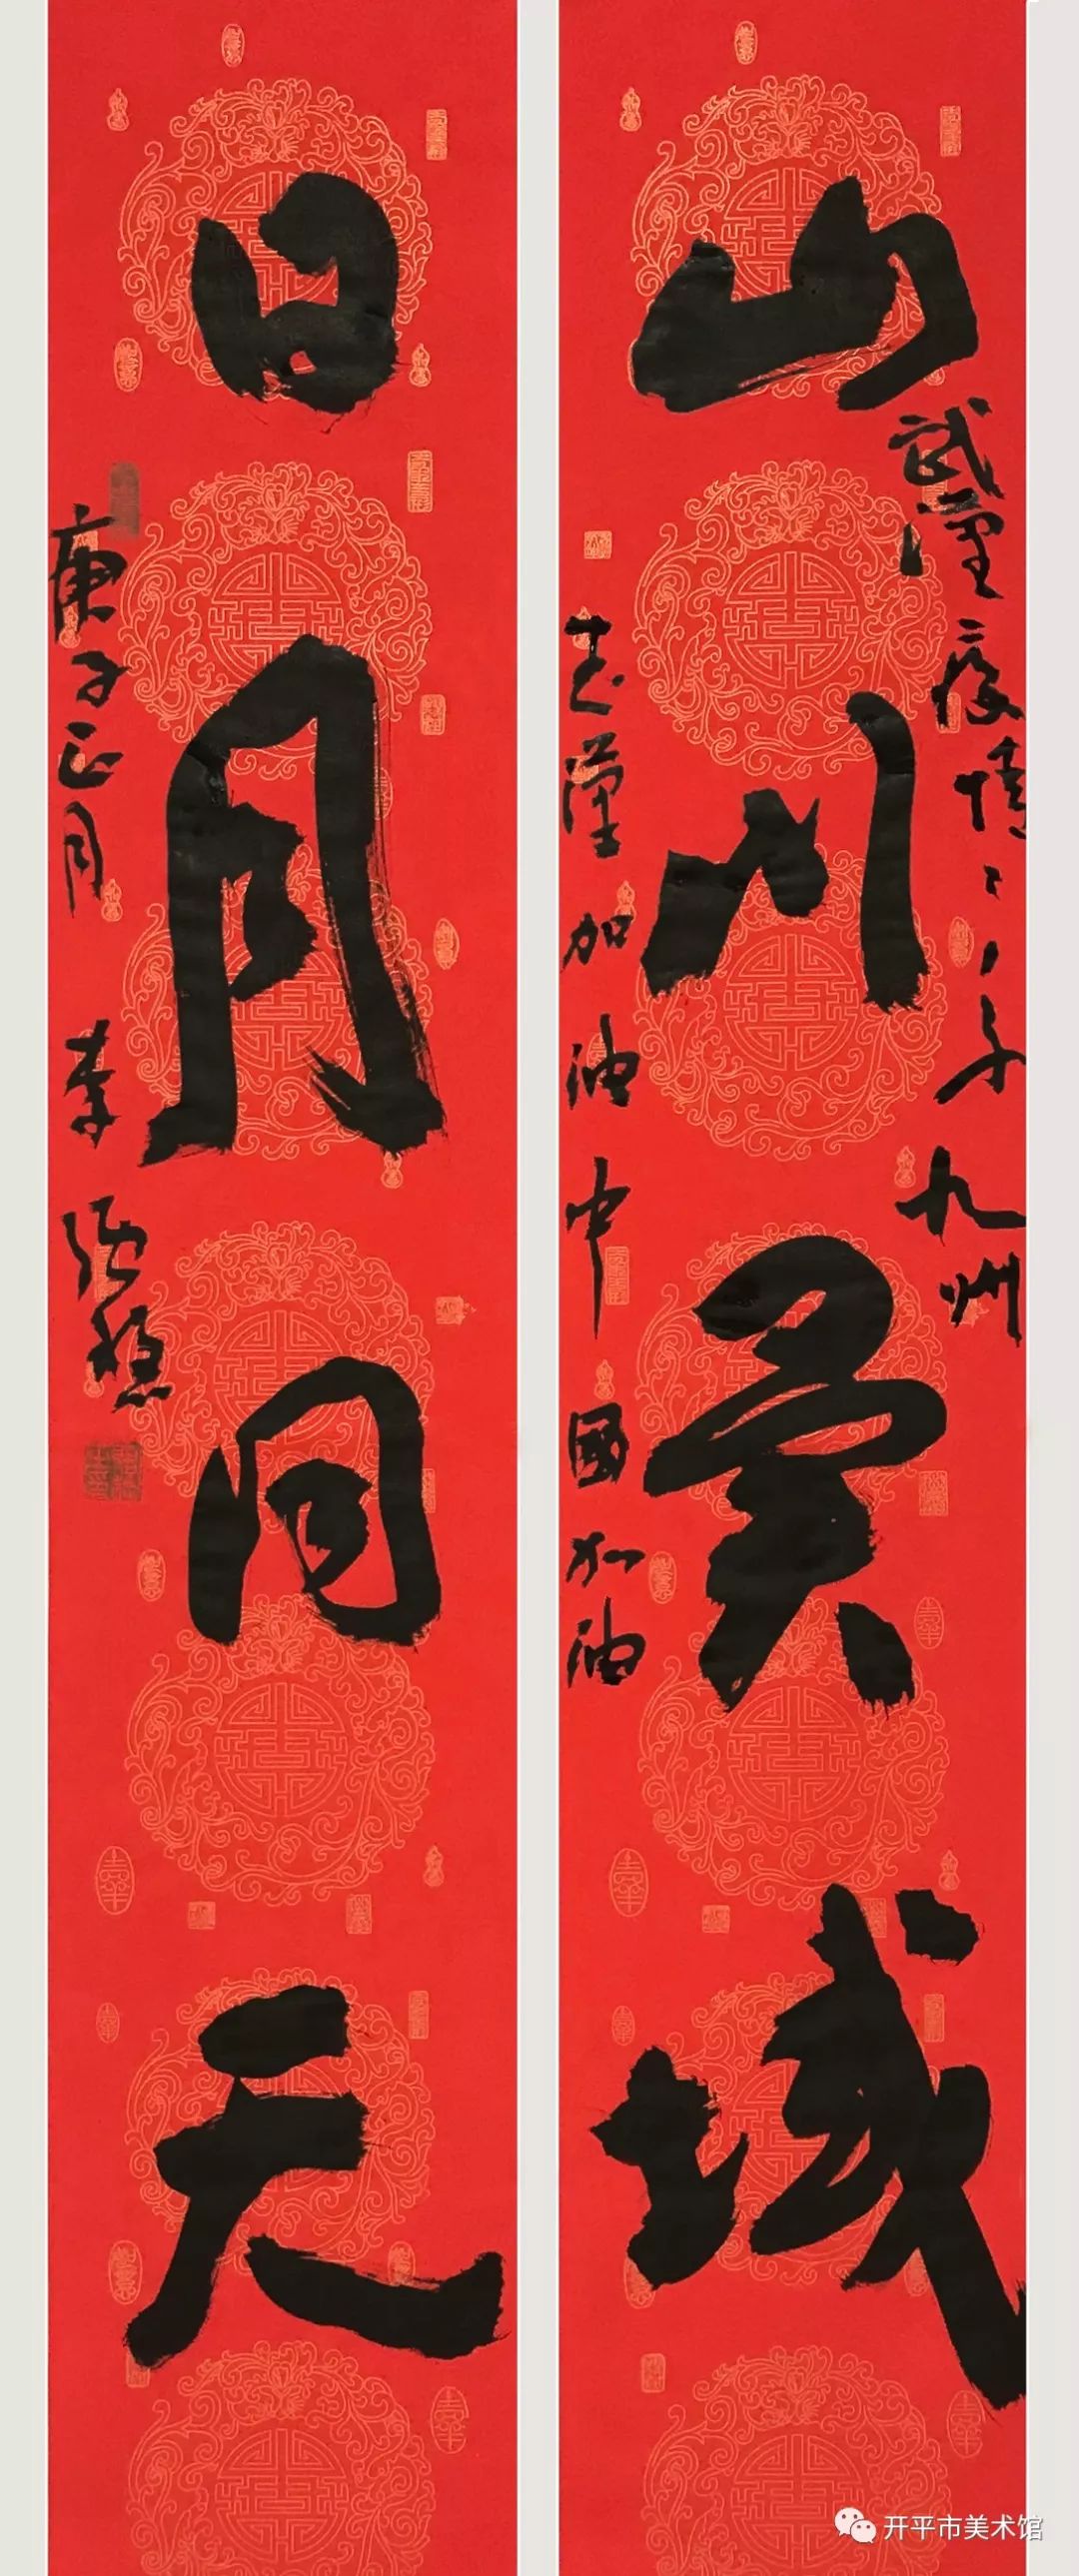 山川異域
武漢疫情
九州
武漢加油中國加油
日月同天
庚子正月 李
开平市美术馆